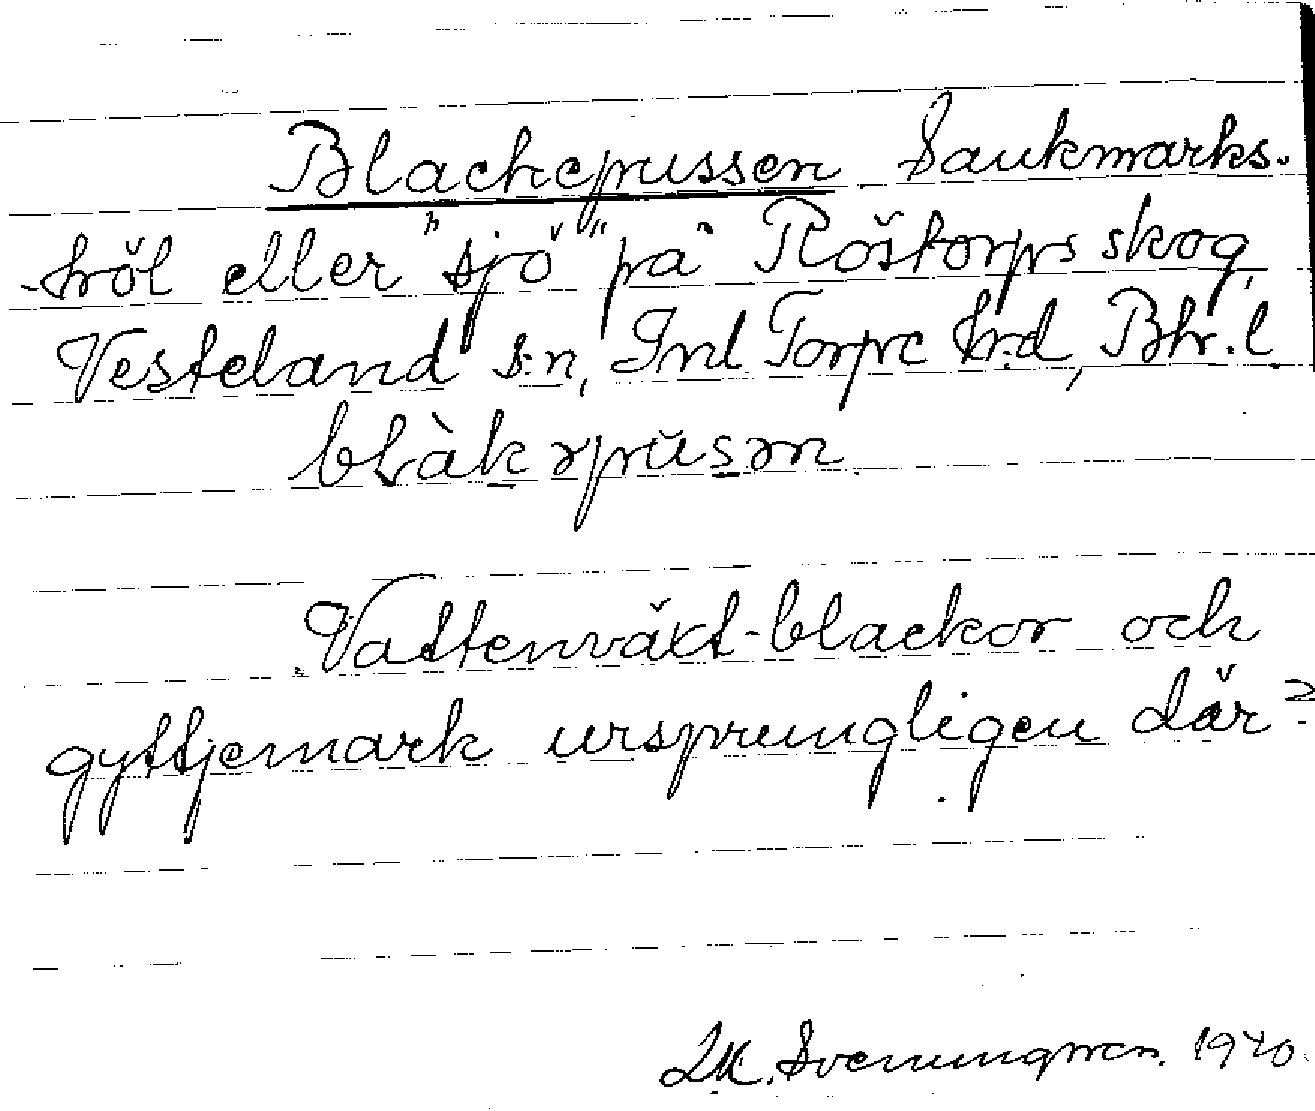 Blackepussen Sankmarks-
-höl eller "sjö" på Röstorps skog,
Vesterland s:n, Inl Torpe hrd, Bhr.l.
blàkəpŭsən
Vattenväxt-blackor och
gyttjemark ursprungligen där?
Svenungsson. 1940.